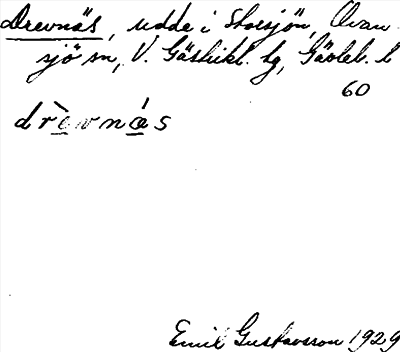 Drevnäs, udde i Storsjön, Ovan-
sjö sn, V. Gästrikl. hg, Gävleb. l
60
drèvnás
Emil Gustavsson 1929